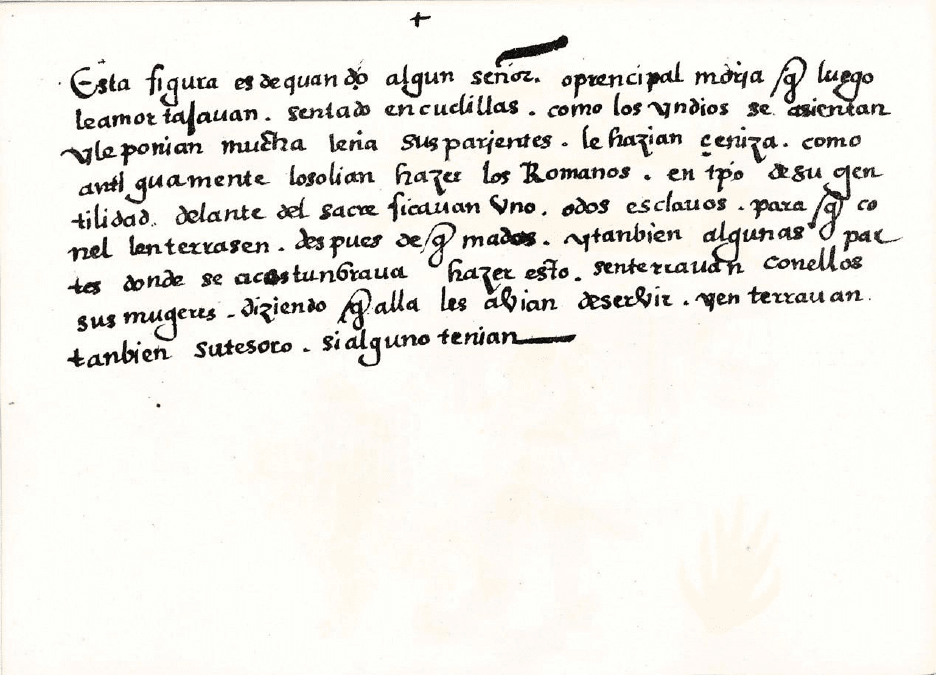 +
Esta figura es de quando algun señor. o prencipal moria q̃ luego
le amortajauan. sentado en cuclillas. como los yndios se asientan
y le ponian mucħa leña sus parientes. le hazian çeniza. como
antiguamente lo solian hazer los Romanos. en tp̃o de su gen
tilidad. delante del sacreficauan Vno. o dos esclauos. para q̃ co
nel lenterrasen. despues de q̃mados. y tanbien algunas par
tes donde se acostunbraua hazer esto. senterrauan con ellos
sus mugeres. diziendo q̃ alla les avian de servir. y enterrauan.
tanbien su tesoro. si alguno tenian